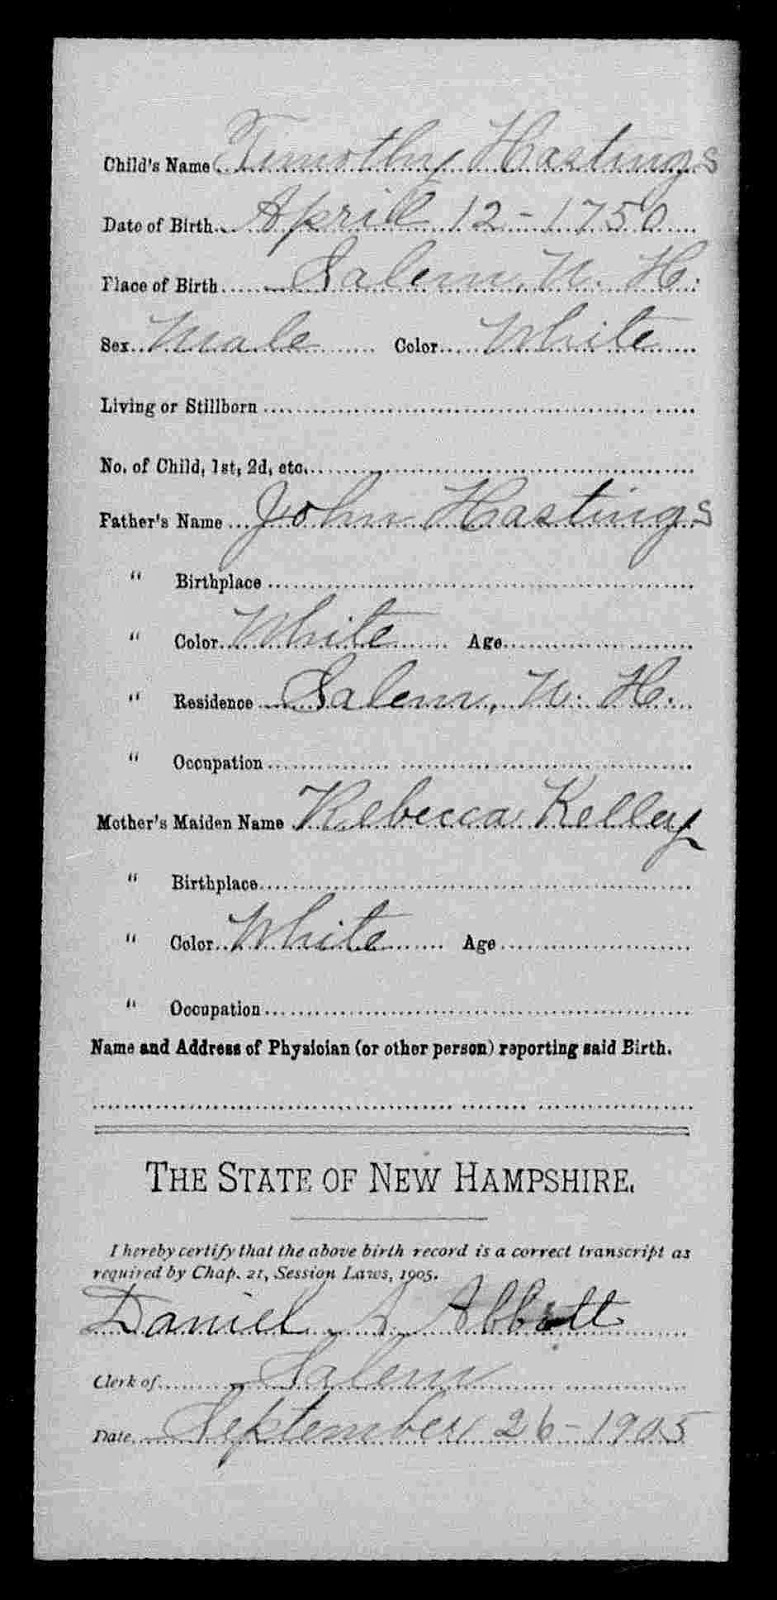 Child's Name Timothy Hastings
Date of Birth April 12 - 1750
Place of Birth Salem, N. H.
Sex Male Color White
Living or Stillborn
No. of Child, 1st, 2d, etc.
Father's Name John Hastings
" Birthplace
" Color White Age
" Residence Salem, N. H.
" Occupation
Mother's Maiden Name Rebecca Kelley
" Birthplace
" Color White Age
" Occupation
Name and Address of Physician (or other person) reporting said Birth.
THE STATE OF NEW HAMPSHIRE.
I hereby certify that the above birth record is a correct transcript as
required by Chap. 21, Session Laws, 1905.
Daniel A Abbott
Clerk of Salem
Date September 26 - 1905